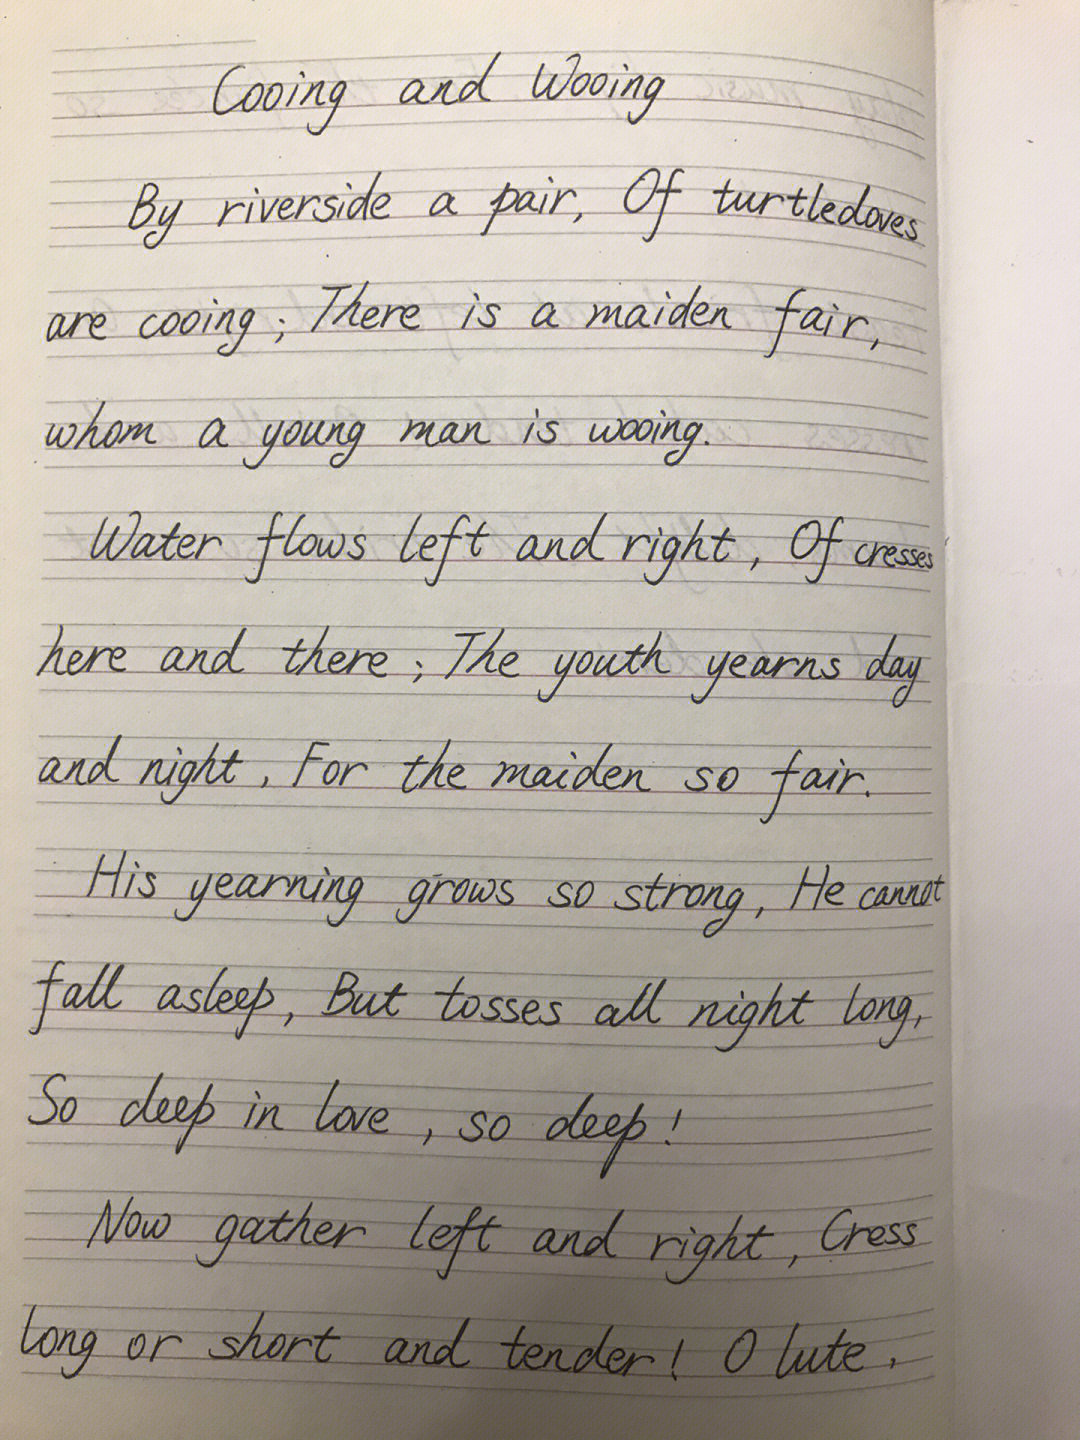 Cooing and Wooing
By riverside a pair, Of turtledoves
are cooing; There is a maiden fair,
whom a young man is wooing.
Water flows left and right, Of cresses
here and there; The youth yearns day
and night, For the maiden so fair.
His yearning grows so strong, He cannot
fall asleep, But tosses all night long,
So deep in love, so deep!
Now gather left and right, Cress
long or short and tender! O lute,